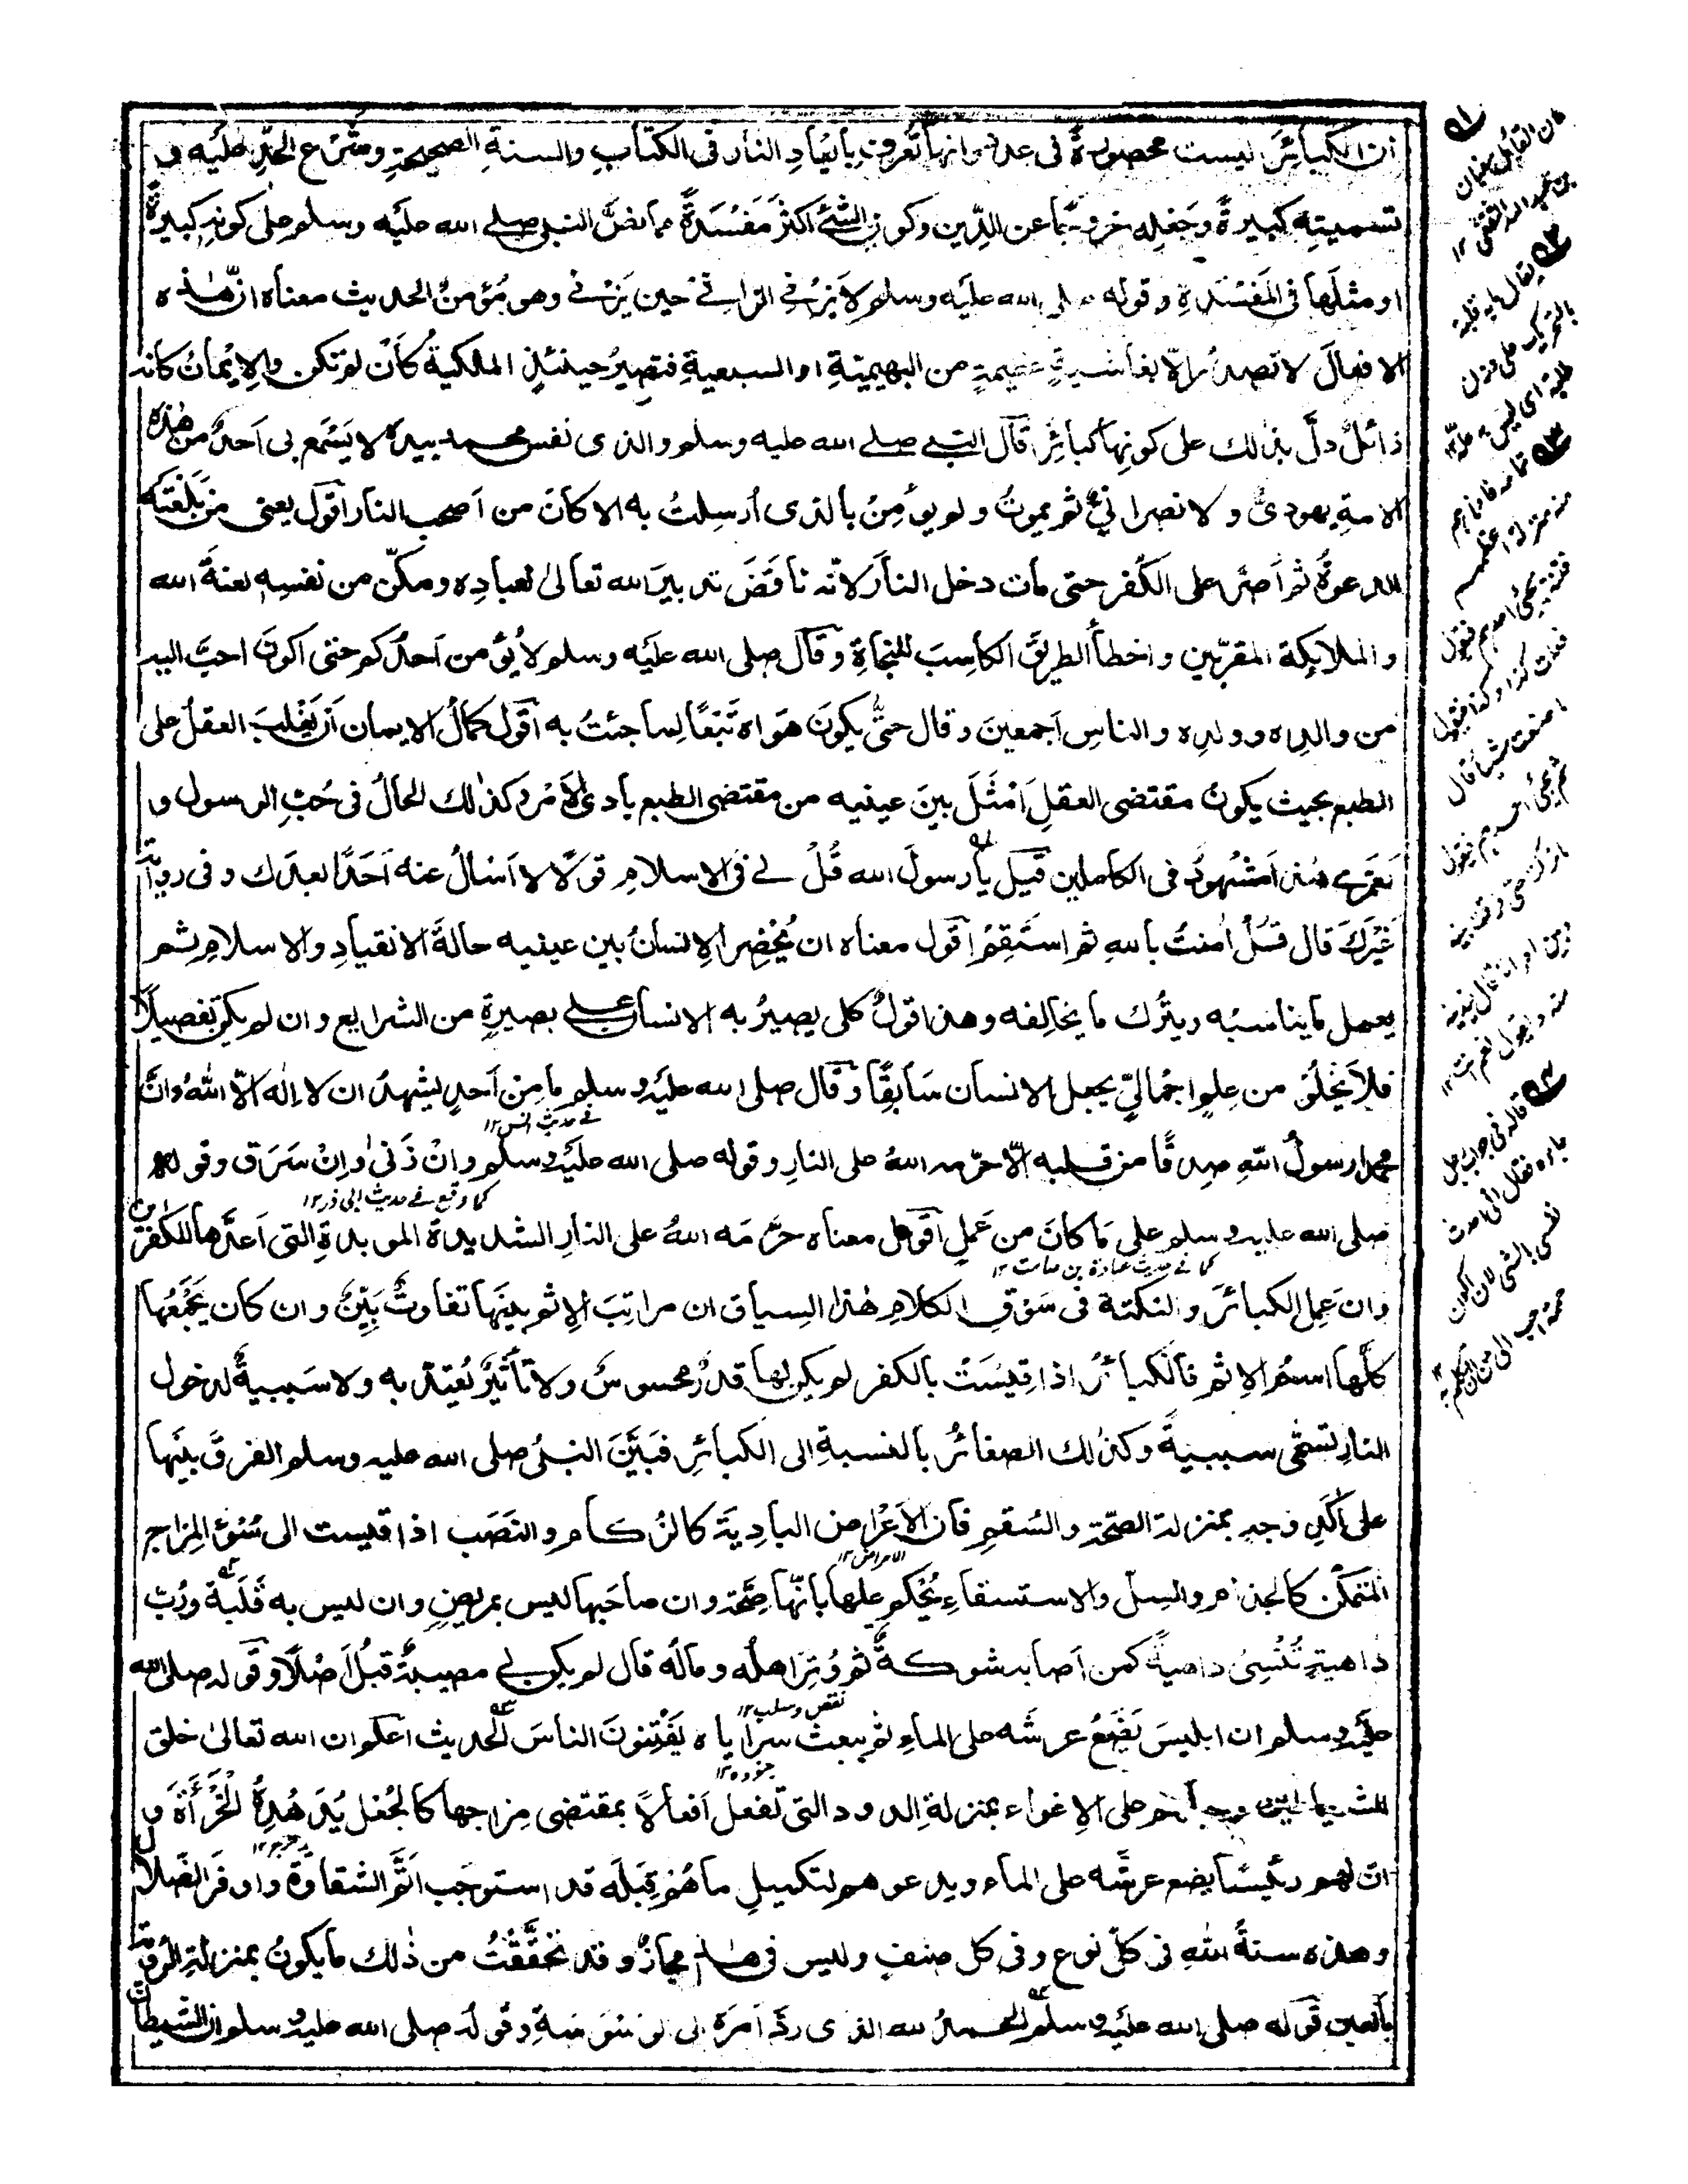 ان الكبائرَ ليست محصورةً فى عدد وانها تُعرف بايعادِ النار فى الكتابِ والسنةِ الصحيحةِ وشرع الحدّ عليه و
تسميتِه كبيرةً وجعلِه خروجًا عن الدِّين وكونِ الشئ اكثرَ مَفْسَدَةً مما نصَّ النبى صلے الله عليه وسلم على كونه كبيرةً
او مثلَها فى المَفْسَدةِ وقوله صلى الله عليه وسلم لا يَزنى الزانى حين يَزنى وهو مُؤمنٌ الحديث معناه انّ هٰذه
الافعالَ لا تصدرُ الّا بغاشيةٍ عظيمةٍ من البهيميةِ او السبعيةِ فتصيرُ حينئذٍ الملكيةُ كأن لم تكن والايمانُ كانه
زائلٌ دلَّ بذلك على كونِها كبائِرَ قال النبے صلے الله عليه وسلم والذى نفس محمد بيده لا يَسْمَع بى اَحدٌ من هٰذه
الامةِ يهودىٌّ ولا نصرانىٌّ ثم يموتُ ولم يؤمِنُ بالذى اُرسِلتُ به الا كانَ من اَصحٰب النار اقول يعنى من بَلَغَتْه
الدعوةُ ثم اَصرَّ على الكُفر حتى مات دخل النارَ لانّه ناقَضَ تدبيرَ الله تعالىٰ لعبادِه ومكّن من نفسِه لعنةَ الله
والملائكة المقرّبين واخطأ الطريقَ الكاسِبَ للنجاةِ وقال صلى الله عليه وسلم لا يُؤمن اَحدُكم حتى اكونَ احبَّ اليه
من والدِه وولدِه والناسِ اَجمعينَ وقال حتّٰى يكونَ هَواه تَبَعًا لِما جئتُ به اقول كمالُ الايمان اَن يَغْلِبَ العقلُ على
الطبع بحيث يكونُ مقتضى العقلِ اَمْثَلَ بينَ عينيه من مقتضى الطبع بادىَ الاَمْر وكذٰلك الحالُ فى حُبِّ الرسول و
لَعَمْرى هٰذا مَشْهودٌ فى الكاملين قيل يا رسولَ الله قُلْ لے فى الاسلام قولًا لا اَسْاَلُ عنه اَحَدًا بعدَك وفى رواية
غَيْرَك قال قُلْ اٰمنتُ باللهِ ثم استَقِمْ اقول معناه ان يُحْضِرَ الانسانُ بين عينيه حالةَ الانقيادِ والاسلامِ ثم
يعمل ما يناسبُه ويترُك ما يخالِفه وهذا قولٌ كلى يصيرُ به الانسان علے بصيرةٍ من الشرايع وان لم يكن تفصيلًا
فلا يَخْلُوْ من عِلمٍ اجمالىٍّ يجعل الانسان سَابِقًا وقال صلى الله عليه وسلم ما مِن اَحدٍ يشهدُ ان لا الٰه الّا اللهُ وانَّ
فے حديث انس ١٢
محمدًا رسولُ اللّٰهِ صِدقًا من قلبه الّا حرّمه اللهُ على النارِ وقوله صلى الله عليه وسلم وانْ زَنىٰ وانْ سَرَق وقوله
كما وقع فے حديث ابى ذر ١٢
صلى الله عليه وسلم على مَا كانَ من عَمَلٍ اقول معناه حرَّمَه اللهُ على النارِ الشديدة الموبدةِ التى اَعدَّها للكٰفرين
كما فے حديث عبادة بن صامت ١٢
وان عَمِل الكبائرَ والنكتة فى سَوْقِ الكلامِ هٰذا السِياق ان مراتبَ الاِثم بينَها تفاوتٌ بَيِّنٌ وان كان يَجْمَعُها
كلَّها اسمُ الاِثم فالكبائرُ اذا قِيْسَتْ بالكفر لم يكن لها قدرٌ محسوسٌ ولا تأثيرٌ يُعتدّ به ولا سَببيةٌ لدخول
النارِ تسمّٰى سببيةً وكذٰلك الصغائرُ بالنسبةِ الى الكبائرِ فبَيَّنَ النبىُّ صلى الله عليه وسلم الفرقَ بينَها
على اٰكَدِ وجهٍ بمنزلة الصحّة والسُقم فان الاَعْراض الباديَة كالزكام والنَصَب اذا قيست الى سُوْءِ المِزاج
الامراض ١٢
المتمكّن كالجذام والسِل والاستسقاءِ يُحْكم عليها بانّها صِحّة وان صاحَبها ليس بمريضٍ وان ليس به قَلَبة ورُبّ
داهيةٍ تُنْسِىْ داهيةً كمن اَصابه شوكةٌ ثم وُتِرَ اهلَه ومالَه قال لم يكن لے مصيبةٌ قبلُ اَصْلًا وقوله صلى الله
نقص وسلب ١٢
عليه وسلم ان ابليسَ يَضَعُ عرشَه على الماءِ ثم يبعث سراياه يَفْتِنونَ الناسَ الحديث اعلم ان الله تعالىٰ خلق
جنوده ١٢
الشياطين وجبلهم على الاِغواء بمنزلةِ الدود التى تفعل اَفعالًا بمقتضى مِزاجها كالجُعَل يُدَهْدِهُ الخُرْأَةَ و
ان لهم رئيسًا يضع عرشَه على الماء ويدعوهم لتكميلِ ما هُم قِبَلَه قد استوجَب اَتَمَّ الشقاوة واوفَرَ الضلال
وهذه سنةُ اللّٰهِ فى كلّ نوع وفى كل صنفٍ وليس فى هٰذا مجازٌ وقد تحقَّقْتُ من ذٰلك ما يكونُ بمنزلةِ الرؤية
بالعين قوله صلى الله عليه وسلم الحمدُ لله الذى ردَّ اَمرَه الى الوَسْوَسَةِ وقوله صلى الله عليه وسلم ان الشيطان
كان القائل سفيان
بن عبد الله الثقفى ١٢
يقال ما به قلبة
بالتحريك على وزن
طلبة اى ليس به علة ١٢
تمامه فادناهم
منه منزلة اعظمهم
فتنة يجئ احدهم فيقول
فعلت كذا وكذا فيقول
ما صنعت شيئا قال
ثم يجئ احدهم فيقول
ما تركته حتى فرقت بينه
وبين امرأته قال فيدنيه
منه ويقول نعم انت ١٢
قاله فى جواب رجل
جاءه فقال انى احدث
نفسى بالشئ لان اكون
حممة احب الى من ان اتكلم به ١٢